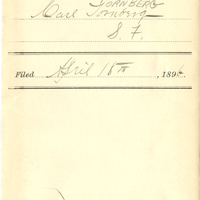 TORNBERG
Carl Tornberg
S. F.
Filed April 18th, 1896